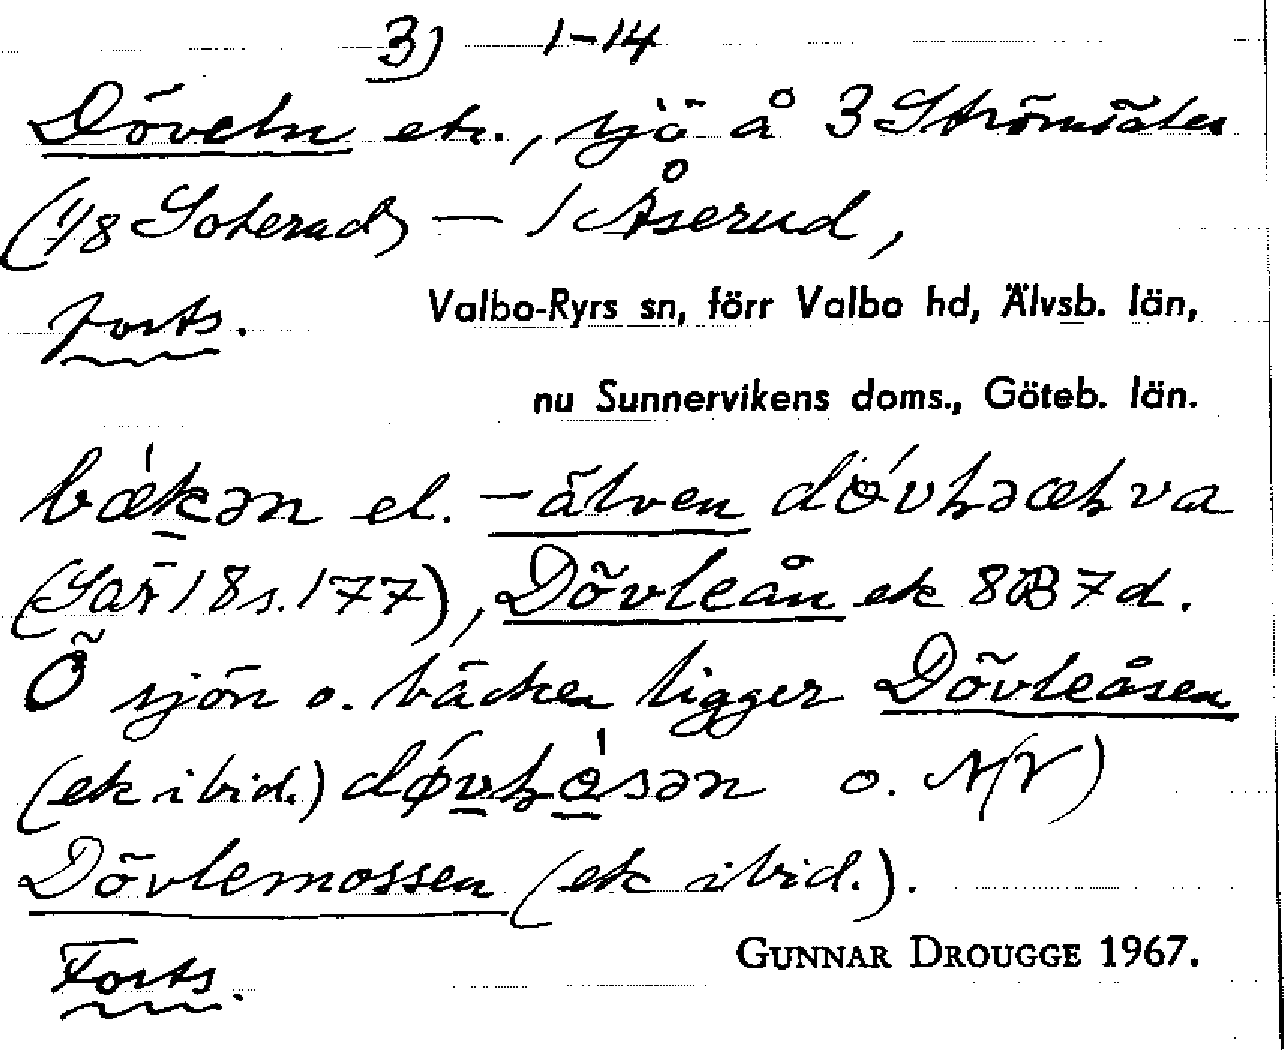 3) 1-14
Döveln etc., sjö å 3 Strömsäter
(1/8 Soterud) — 1 Åserud,
Forts. Valbo-Ryrs sn, förr Valbo hd, Älvsb. län,
nu Sunnervikens doms., Göteb. län.
bækən el. -älven
(SOÄ 18 s. 177), Dövleån ek 8087 d.
Ö sjön o. bäcken ligger Dövleåsen
(ek ibid.) o. N(V)
Dövlemossen (ek ibid.).
Forts. GUNNAR DROUGGE 1967.